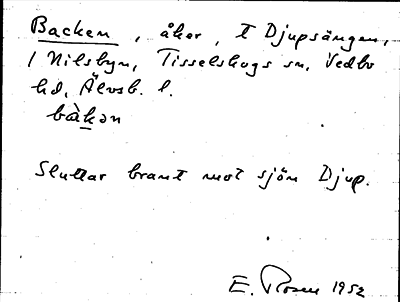 Backen, åker, t Djupsängen,
1 Nilsbyn, Tisselskogs sn, Vedbo
hd, Älvsb. l.
bàkən
Sluttar brant mot sjön Djup.
E. Rosen 1952